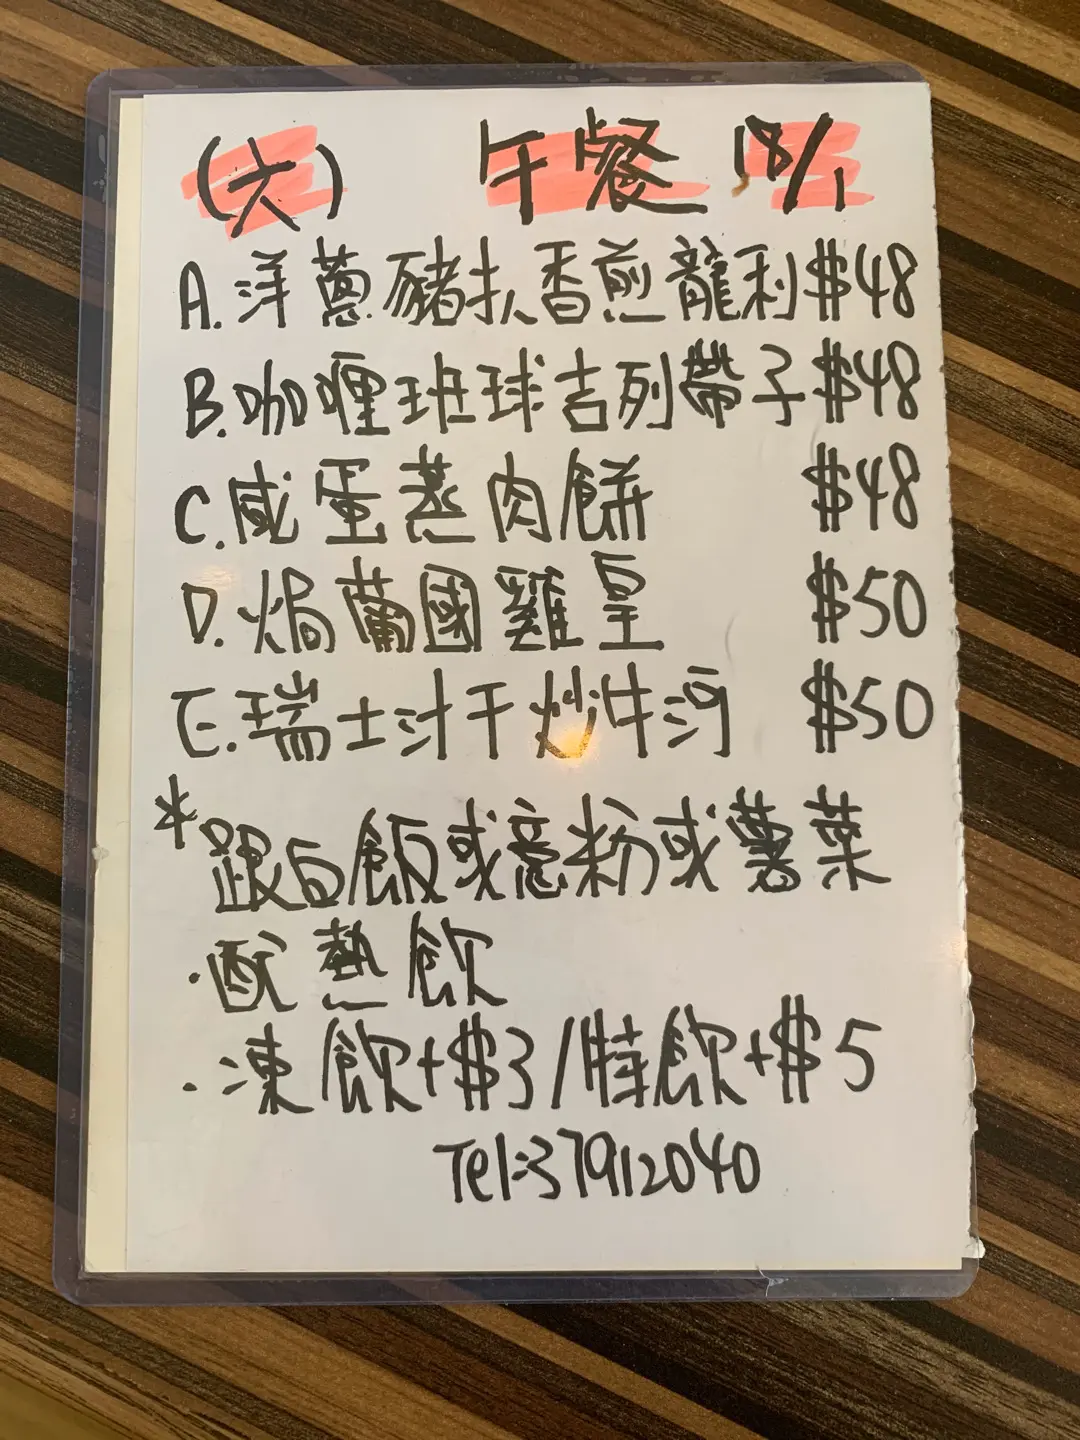 (六) 午餐 18/1
A.洋蔥豬扒香煎龍利$48
B.咖喱班球吉列帶子$48
C.咸蛋蒸肉餅 $48
D.焗葡國雞皇 $50
E.瑞士汁干炒牛河 $50
*跟白飯或意粉或薯菜
·配熱飲
·凍飲+$3/特飲+$5
Tel:37912040